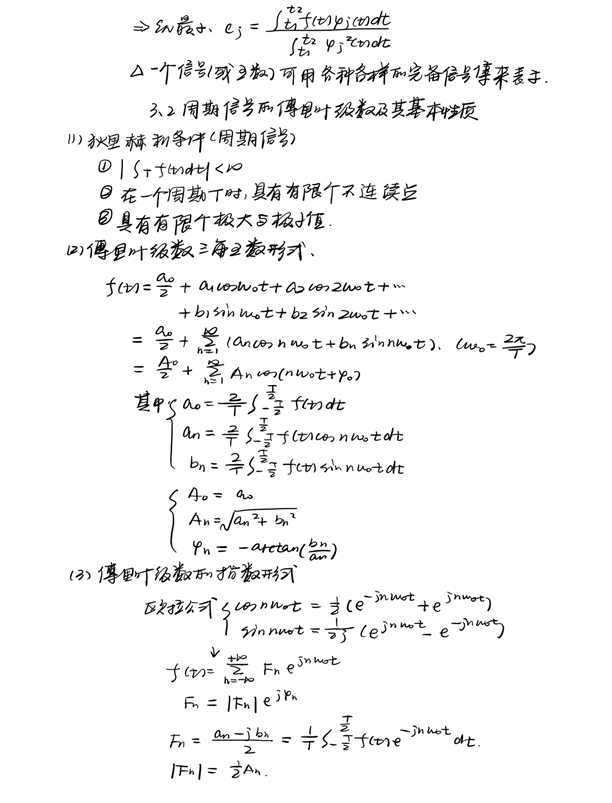 ⇒ εn最小. cj = ∫t1^t2 f(t)φj(t)dt / ∫t1^t2 φj²(t)dt
△ 一个信号(或函数)可用各种各样的完备信号集来表示.
3.2 周期信号的傅里叶级数及其基本性质
(1) 狄里赫利条件(周期信号)
① |∫T f(t)dt| < ∞
② 在一个周期T时,具有有限个不连续点
③ 具有有限个极大与极小值.
(2) 傅里叶级数三角函数形式.
f(t) = a0/2 + a1cosω0t + a2cos2ω0t + ⋯
+ b1sinω0t + b2sin2ω0t + ⋯
= a0/2 + ∑n=1^∞ (an cos nω0t + bn sin nω0t). (ω0 = 2π/T)
= A0/2 + ∑n=1^∞ An cos(nω0t + φ0)
其中 { a0 = 2/T ∫-T/2^T/2 f(t)dt
an = 2/T ∫-T/2^T/2 f(t)cos nω0t dt
bn = 2/T ∫-T/2^T/2 f(t)sin nω0t dt
{ A0 = a0
An = √(an² + bn²)
φn = -arctan(bn/an)
(3) 傅里叶级数的指数形式
欧拉公式 { cos nω0t = 1/2 (e^-jnω0t + e^jnω0t)
sin nω0t = 1/2j (e^jnω0t - e^-jnω0t)
↓
f(t) = ∑n=-∞^+∞ Fn e^jnω0t
Fn = |Fn| e^jφn
Fn = (an - jbn)/2 = 1/T ∫-T/2^T/2 f(t) e^-jnω0t dt.
|Fn| = 1/2 An.